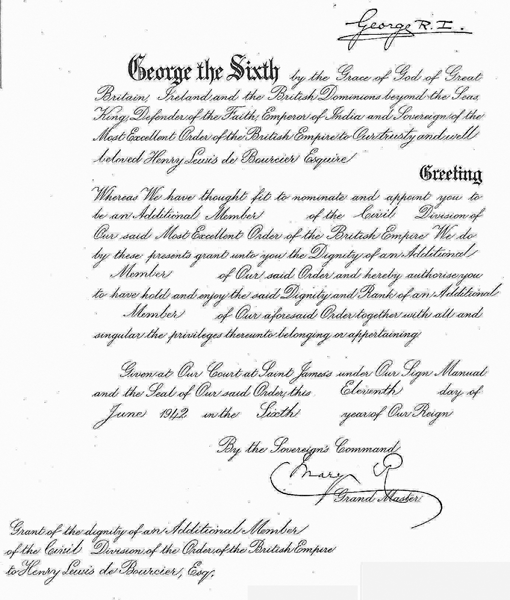 George R.I.
George the Sixth by the Grace of God of Great
Britain, Ireland and the British Dominions beyond the Seas
King, Defender of the Faith, Emperor of India and Sovereign of the
Most Excellent Order of the British Empire to Our trusty and well
beloved Henry Lewis de Bourcier Esquire
Greeting
Whereas We have thought fit to nominate and appoint you to
be an Additional Member of the Civil Division of
Our said Most Excellent Order of the British Empire We do
by these presents grant unto you the Dignity of an Additional
Member of Our said Order and hereby authorise you
to have hold and enjoy the said Dignity and Rank of an Additional
Member of Our aforesaid Order together with all and
singular the privileges thereunto belonging or appertaining
Given at Our Court at Saint James's under Our Sign Manual
and the Seal of Our said Order, this Eleventh day of
June 1942 in the Sixth year of Our Reign
By the Sovereign's Command
Mary R
Grand Master
Grant of the dignity of an Additional Member
of the Civil Division of the Order of the British Empire
to Henry Lewis de Bourcier, Esq.